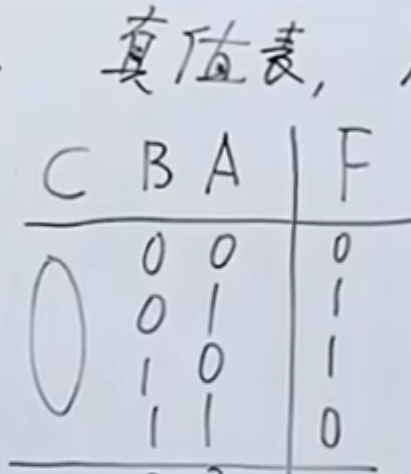 真值表,
C B A F
0 0 0 0
0 1 1
1 0 1
1 1 0